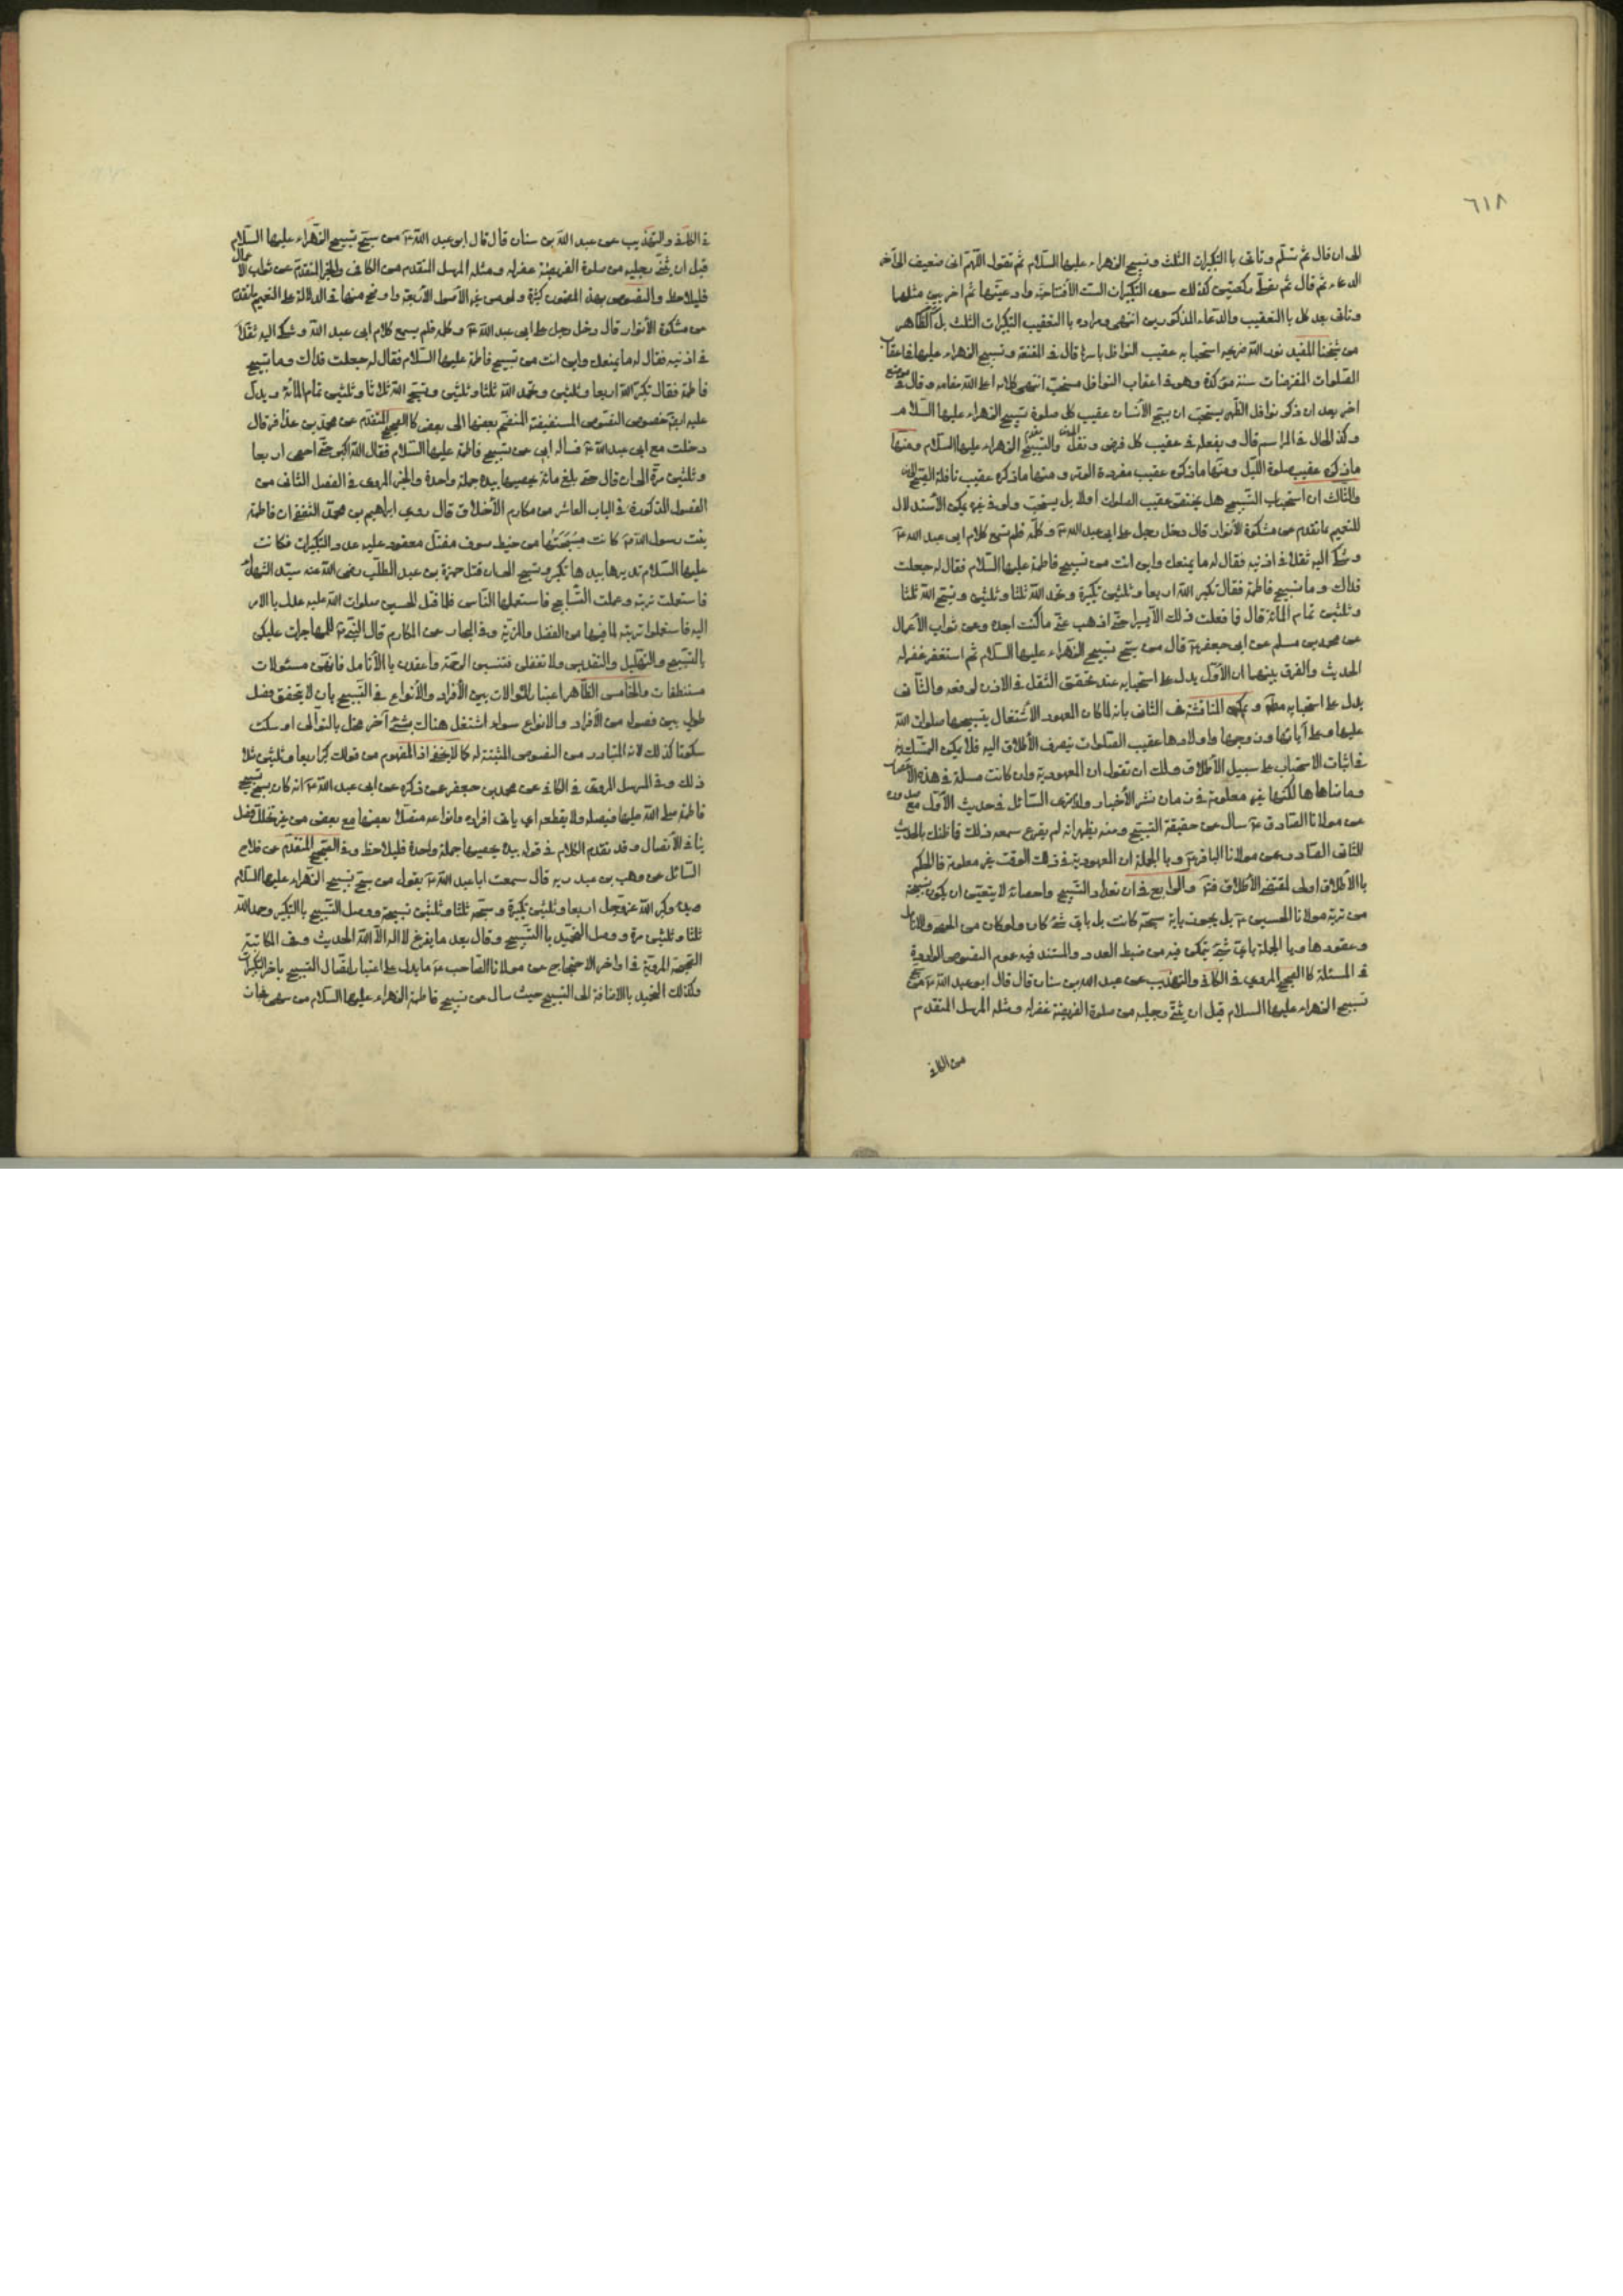 ٦١٨
الى ان قال ثم تسلّم وتاتى بالتكبيرات الثلث وتسبيح الزهراء عليها السلام ثم تقول اللهمّ انى ضعيف الى آخر
الدعاء ثم قال ثم تصلّى ركعتين كذلك سوى التكبيرات الست الافتتاحيّة وادعيتها ثم اخريين مثلهما
وتاتى بعد كل بالتعقيب والدعاء المذكورين انتهى ومراده بالتعقيب التكبيرات الثلث بل الظاهر
من شيخنا المفيد نور الله ضريحه استحبابه عقيب النوافل باسرها قال فى المقنعة وتسبيح الزهراء عليها فى اعقاب
الصلوات المفروضات سنة مؤكدة وهو فى اعقاب النوافل مستحبّ انتهى كلامه اعلى الله مقامه وقال فى موضع
اخر بعد ان ذكر نوافل الظهر يستحبّ ان يسبّح الأنسان عقيب كل صلوة تسبيح الزهراء عليها السلام
وكذا الحال فى المراسم قال ويفعله فى عقيب كل فرض ونفل والتسبيح الزهراء عليها السلام ومنها
ماذكره عقيب صلوة الليل ومنها ماذكره عقيب مفردة الوتر ومنها ماذكره عقيب نافلة الصبح
والثالث ان استحباب التسبيح هل يختصّ عقيب الصلوات اولا بل يستحبّ ولو فى غيره يمكن الأستدلال
للتعميم بما تقدم عن مشكوة الأنوار قال دخل رجل على ابى عبد الله ع وكلّمه فلم يسمع كلام ابى عبد الله ع
وشكى اليه ثقلا فى اذنيه فقال له ما يمنعك واين انت من تسبيح فاطمة عليها السلام فقال له جعلت
فداك وما تسبيح فاطمة فقال تكبر الله اربعا وثلثين تكبيرة وتحمد الله ثلثا وثلثين وتسبّح الله ثلثا
وثلثين تمام المائة قال فما فعلت ذلك الّا يسيرا حتّى اذهب عنّى ما كنت اجده وعن ثواب الأعمال
عن محمد بن مسلم عن ابى جعفر ع قال من سبّح تسبيح الزهراء عليها السلام ثم استغفر غفر له
الحديث والفرق بينهما ان الأوّل يدل على استحبابه عند تحقق الثقل فى الاذن لرفعه والثانى
يدل على استحبابه مطلقا ويمكن المناقشة فى الثانى بانه لما كان المعهود الأشتغال بتسبيحها صلوات الله
عليها وعلى آبائها وزوجها واولادها عقيب الصلوات ينصرف الأطلاق اليه فلا يمكن التمسّك به
فى اثبات الاستحباب على سبيل الأطلاق ولك ان تقول ان المعهودية وان كانت مسلمة فى هذه الأعصار
وما ضاهاها لكنها غير معلومة فى زمان نشر الأخبار والا ترى السائل فى حديث الأوّل مع صدوره
عن مولانا الصادق ع سال عن حقيقة التسبيح ومنه يظهر انه لم يقرع سمعه ذلك فما ظنك بالحديث
الثانى الصادر عن مولانا الباقر ع وبالجملة ان المعهودية فى ذلك الوقت غير معلومة فالحكم
بالأطلاق اولى لمقتضى الأطلاق فتدبر والرابع فى ان تعداد التسبيح واحصائه لا يتعيّن ان يكون بسبحة
من تربة مولانا الحسين ع بل يجوز باية سبحة كانت بل باىّ شئ كان ولو كان من الحصى والانامل
وعقودها وبالجملة باىّ شئ يمكن فيه من ضبط العدد والمستند فيه عموم النصوص الواردة
فى المسئلة كالصحيح المروى فى الكافى والتهذيب عن عبد الله بن سنان قال قال ابو عبد الله ع من سبّح
تسبيح الزهراء عليها السلام قبل ان يثنى رجليه من صلوة الفريضة غفر له ومثله المرسل المتقدم
من الكافى
فى الكافى والتهذيب عن عبد الله بن سنان قال قال ابو عبد الله ع من سبّح تسبيح الزهراء عليها السلام
قبل ان يثنى رجليه من صلوة الفريضة غفر له ومثله المرسل المتقدم من الكافى والخبر المتقدم عن ثواب الأعمال
فليلاحظ والنصوص بهذا المضمون كثيرة ولو من غير الأصول الأربعة واوضح منها فى الدلالة على التعميم ما تقدّم
من مشكوة الأنوار قال دخل رجل على ابى عبد الله ع وكلّمه فلم يسمع كلام ابى عبد الله وشكى اليه ثقلا
فى اذنيه فقال له ما يمنعك واين انت من تسبيح فاطمة عليها السلام فقال له جعلت فداك وما تسبيح
فاطمة فقال تكبّر الله اربعا وثلثين وتحمد الله ثلثا وثلثين وتسبّح الله ثلاثا وثلثين تمام المائة ويدلّ
عليه ايضا خصوص النصوص المستفيضة المنضم بعضها الى بعض كالصحيح المتقدم عن محمد بن عذافر قال
دخلت مع ابى عبد الله ع فساله ابى عن تسبيح فاطمة عليها السلام فقال الله اكبر حتّى احصى اربعا
وثلثين مرّة الى ان قال حتى بلغ مائة يحصيها بيده جملة واحدة والخبر المروى فى الفصل الثانى من
الفصول المذكورة فى الباب العاشر من مكارم الأخلاق قال روى ابراهيم بن محمد الثقفى ان فاطمة
بنت رسول الله ص كانت مسبحتها من خيط صوف مفتل معقود عليه عدد التكبيرات فكانت
عليها السلام تديرها بيدها تكبر وتسبح الى ان قتل حمزة بن عبد المطلب رضى الله عنه سيّد الشهداء
فاستعملت تربته وعملت التسابيح فاستعملها الناس فلما قتل الحسين صلوات الله عليه عدل بالامر
اليه فاستعملوا تربته لما فيها من الفضل والمزيّة وفى البحار عن المكارم قال النبى ص للمهاجرات عليكن
بالتسبيح والتهليل والتقديس ولا تغفلن فتنسين الرحمة واعقدن بالأنامل فانهنّ مسئولات
مستنطقات والخامس الظاهر اعتبار الموالات بين الأفراد والأنواع فى التسبيح بان لا يتحقق فصل
طويل بين فصوله من الأفراد والانواع سواء اشتغل هناك بشئ آخر مخل بالتوالى او سكت
سكوتا كذلك لانه المتبادر من النصوص المثبتة له كما لا يخفى اذ المفهوم من قولك كبر اربعا وثلثين مثلا
ذلك وفى المرسل المروى فى الكافى عن محمد بن جعفر عن ذكره عن ابى عبد الله ع انه كان يسبح تسبيح
فاطمة صلى الله عليها فيصله ولا يقطعه اى ياتى افراده وانواعه متصلا بعضها مع بعض من غير تخلل فصل
ينافى الأتصال وقد تقدم الكلام فى قوله بيده يحصيها جملة واحدة فليلاحظ وفى الصحيح المتقدّم عن فلاح
السائل عن وهب بن عبد ربه قال سمعت ابا عبد الله ع يقول من سبّح تسبيح الزهراء عليها السلام
وبدء وكبر الله عزوجل اربعا وثلثين تكبيرة وسبّحه ثلثا وثلثين تسبيحة ووصل التسبيح بالتكبير وحمد الله
ثلثا وثلثين مرة ووصل التحميد بالتسبيح وقال بعد ما يفرغ لا اله الّا الله الحديث وفى المكاتبة
الصحيحة المروية فى اواخر الاحتجاج عن مولانا الصاحب ع ما يدل على اعتبار اتصال التسبيح باخر التكبيرات
وكذلك التحميد بالاضافة الى التسبيح حيث سال عن تسبيح فاطمة الزهراء عليها السلام من سهى فجاز